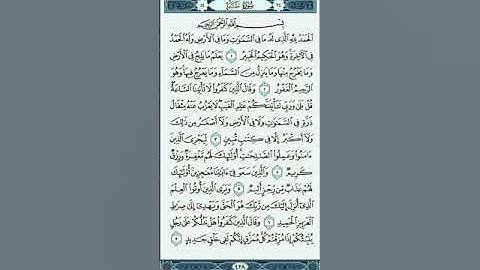 سورة سبإ
بسم الله الرحمن الرحيم
الحمد لله الذي له ما في السموت وما في الأرض وله الحمد
في الآخرة وهو الحكيم الخبير ١ يعلم ما يلج في الأرض
وما يخرج منها وما ينزل من السماء وما يعرج فيها وهو
الرحيم الغفور ٢ وقال الذين كفروا لا تأتينا الساعة
قل بلى وربي لتأتينكم علم الغيب لا يعزب عنه مثقال
ذرة في السموت ولا في الأرض ولا أصغر من ذلك
ولا أكبر إلا في كتب مبين ٣ ليجزي الذين
ءامنوا وعملوا الصلحت أولئك لهم مغفرة ورزق
كريم ٤ والذين سعو في ءايتنا معجزين أولئك
لهم عذاب من رجز أليم ٥ ويرى الذين أوتوا العلم
الذي أنزل إليك من ربك هو الحق ويهدي إلى صرط
العزيز الحميد ٦ وقال الذين كفروا هل ندلكم على رجل
ينبئكم إذا مزقتم كل ممزق إنكم لفي خلق جديد ٧
٤٢٨